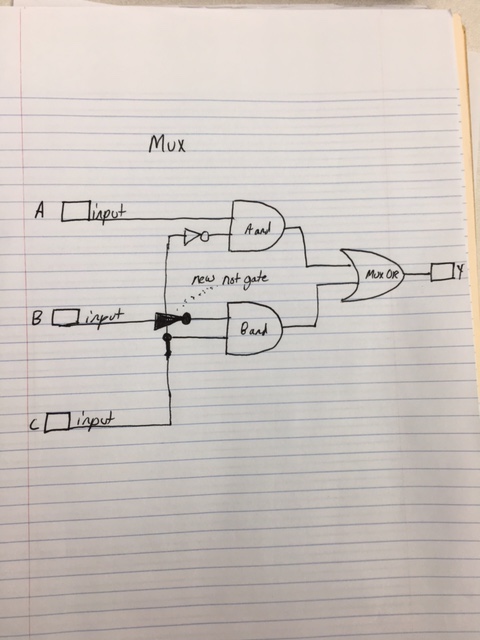 Mux
A input
A and
new not gate
Mux OR Y
B input
B and
C input